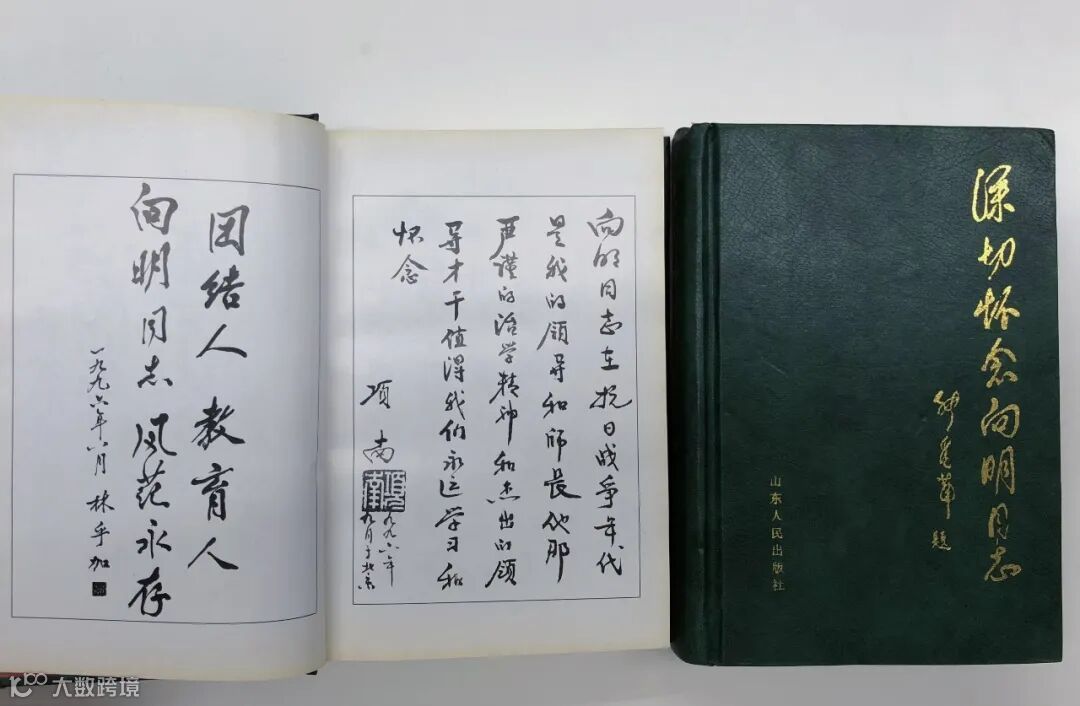 团结人 教育人
向明同志 风范永存
一九九六年八月 林乎加
向明同志在抗日战争年代
是我的领导和师长他那
严谨的治学精神和杰出的领
导才干值得我们永远学习和
怀念
项南
项南
一九九六年
九月于北京
深切怀念向明同志
张爱萍 题
山东人民出版社
大数跨境